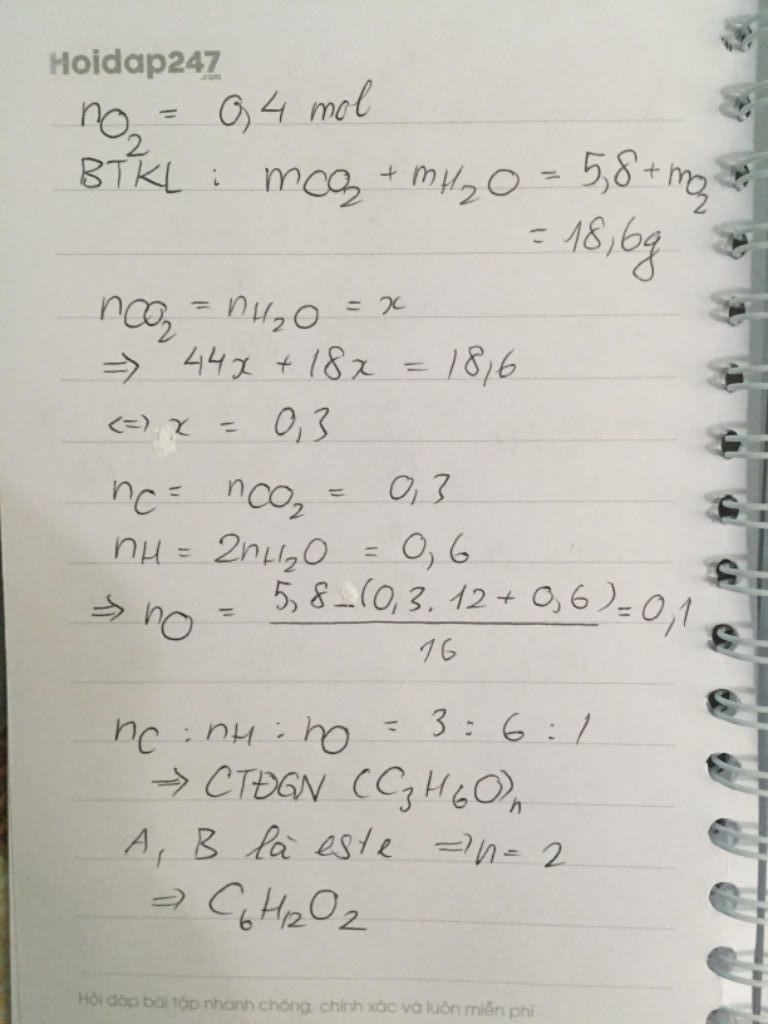 Hoidap247
.com
nO₂ = 0,4 mol
BTKL : mCO₂ + mH₂O = 5,8 + mO₂
= 18,6g
nCO₂ = nH₂O = x
=> 44x + 18x = 18,6
<=> x = 0,3
nC = nCO₂ = 0,3
nH = 2nH₂O = 0,6
=> nO = 5,8 - (0,3. 12 + 0,6) = 0,1
16
nC : nH : nO = 3 : 6 : 1
=> CTĐGN (C₃H₆O)n
A, B là este => n = 2
=> C₆H₁₂O₂
Hỏi đáp bài tập nhanh chóng, chính xác và luôn miễn phí